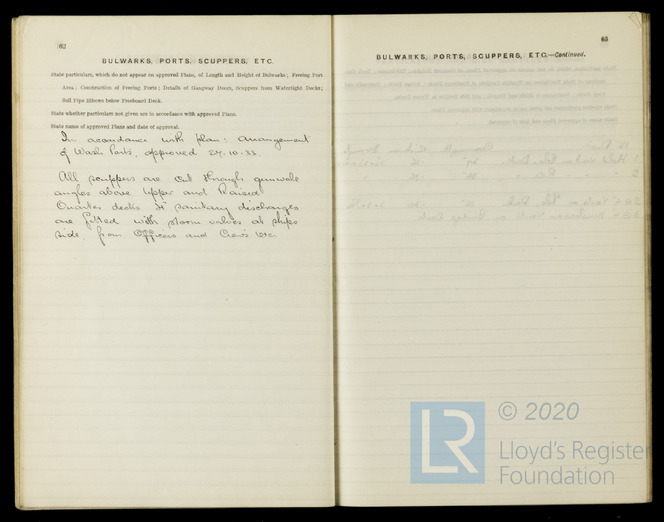 62
BULWARKS, PORTS, SCUPPERS, ETC.
State particulars, which do not appear on approved Plans, of Length and Height of Bulwarks; Freeing Port
Area; Construction of Freeing Ports; Details of Gangway Doors, Scuppers from Watertight Decks;
Soil Pipe Elbows below Freeboard Deck.
State whether particulars not given are in accordance with approved Plans.
State name of approved Plans and date of approval.
In accordance with plan: Arrangement
of Wash Ports, approved 24.10.33.
All scuppers are cut through gunwale
angles above Upper and Raised
Quarter decks sanitary discharges
are fitted with storm valves at ships
side, from Officers and Crew's
63
BULWARKS, PORTS, SCUPPERS, ETC.—Continued.
LR
© 2020
Lloyd's Register
Foundation